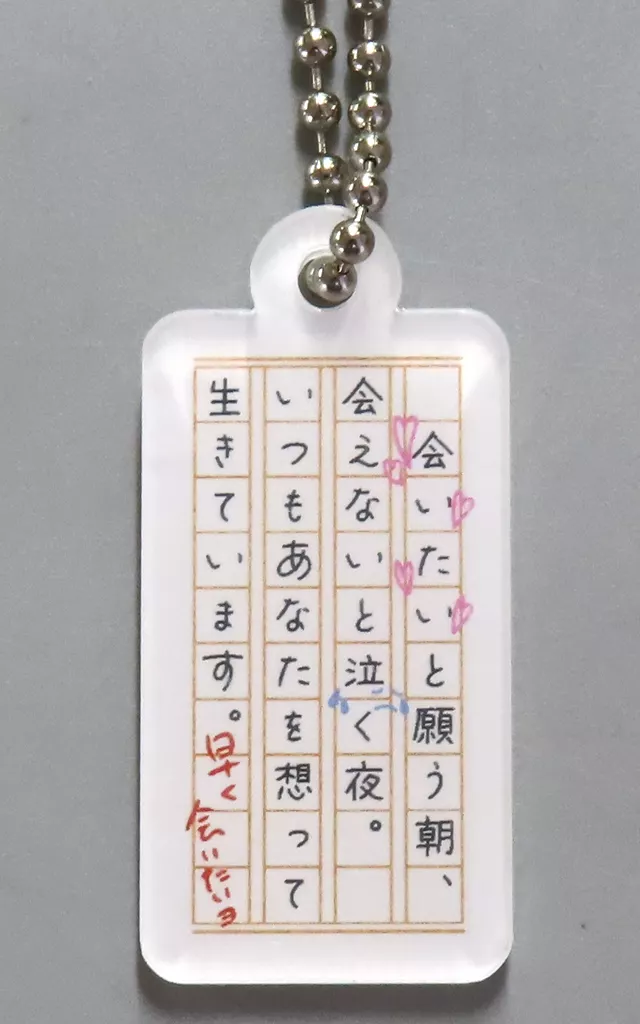 会いたいと願う朝、
会えないと泣く夜。
いつもあなたを想って
生きています。
早く会いたいョ